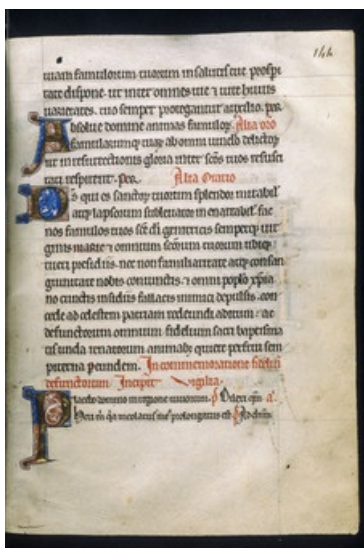 144
tuam famulorum tuorum in salutis tue prosperi
tate dispone. ut inter omnes uie & uite huius
uarietates. tuo semper protegantur auxilio. per.
Absolue domine animas famulorum. Alia oro
famularumque tuarum ab omni uinclo delictorum
ut in resurrectionis gloria inter scos tuos resusci
tati respirent. per. Alia Oratio
Ds qui es sanctorum tuorum splendor mirabil
atque lapsorum subleuator inenarrabil. fac
nos famulos tuos sce di genitricis semperque uir
ginis marie & omnium scorum tuorum ubique
tueri presidiis. nec non familiaritate atque consan
guinitate nobis coniunctis. & omni poplo xpia
no cunctis insidiis fallacis inimici depulsis. con
cede ad celestem patriam redeundi aditum. ac
defunctorum omnium fidelium sacri baptisma
tis unda renatorum animabus quiete perfrui sem
piterna. per eundem. In commemoratione fidelium
defunctorum Incipit Vigilia.
Placebo domino in regione uiuorum. Dilexi qm. a.
Heu m qa incolatus meus prolongatus est. Ad dnm